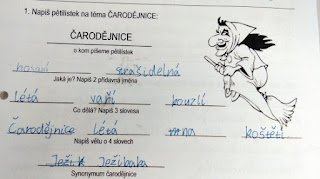 1. Napiš pětilístek na téma ČARODĚJNICE:
ČARODĚJNICE
o kom píšeme pětilístek
nosatá strašidelná
Jaká je? Napiš 2 přídavná jména
Létá vaří kouzlí
Co dělá? Napiš 3 slovesa
Čarodějnice létá na koštěti
Napiš větu o 4 slovech
Ježibaba
Synonymum čarodějnice